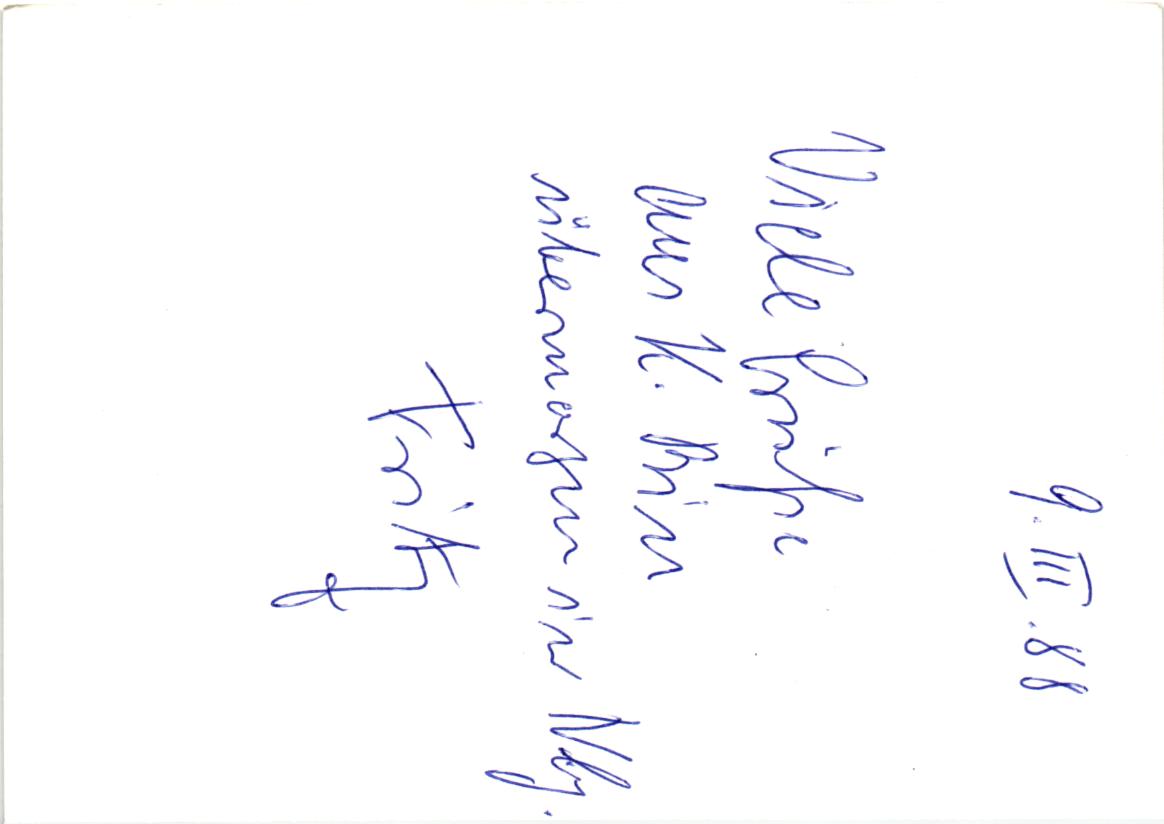 9. III. 88
Viele Grüße
aus K. Bin
übermorgen in Nbg.
Fritz